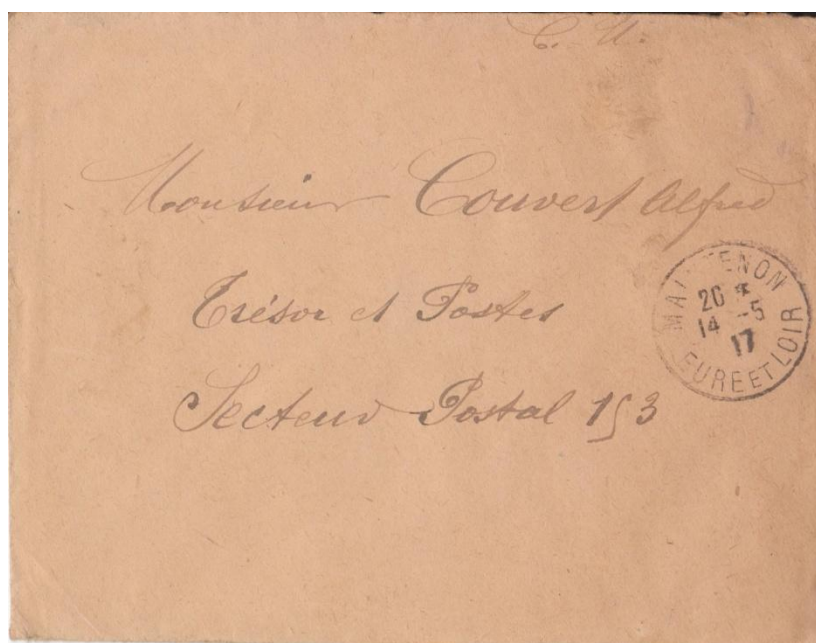 Monsieur Couvert Alfred
Trésor et Postes
Secteur Postal 153
MAINTENON
20 *
14 -5
17
EURE ET LOIR